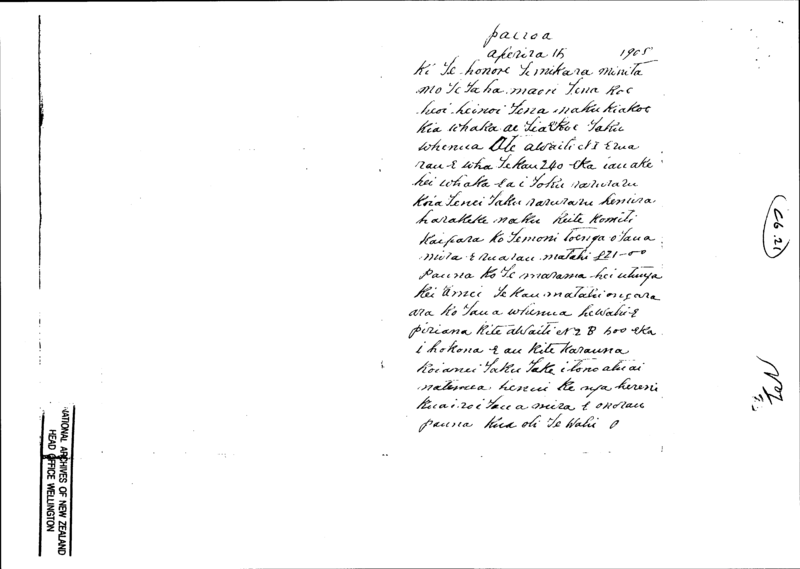 paeroa
aperira 15 1905
Ki Te honore Temikara minita
mo Te Taha maori Tena koe
heoi heinoi Tena naku kiakoe
kia whaka ae Tia e koe Taku
whenua Ote awaiti No 1 E rua
rau E wha Tekau 240 eka iau ake
hei whaka Ea i Toku raruraru
koia Tenei Taku raruraru hemira
harakeke naku keite komiti
kaipara ko Temoni toenga o Taua
mira E ruarau matahi £21-00
pauna ko Te marama hei utunga
kei amei Te kau matahi ongara
ara ko Taua whenua hewahi E
piriana kite awaiti No 2 B 500 eka
i hokona E au kite karauna
koianei Taku Take i tono atu ai
natemea henui ke nga hereni
kuairoi Taua mira E onorau
pauna kua oti Te wahi o
C6.21
NATIONAL ARCHIVES OF NEW ZEALAND
HEAD OFFICE WELLINGTON